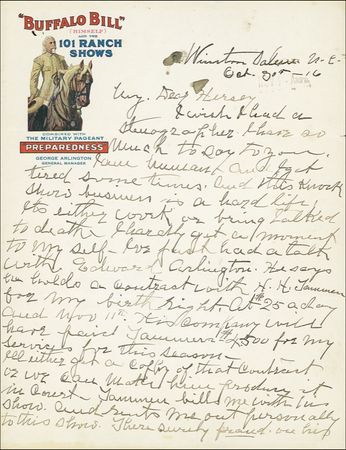 "BUFFALO BILL"
(HIMSELF)
AND THE
101 RANCH
SHOWS
COMBINED WITH
THE MILITARY PAGEANT
PREPAREDNESS
GEORGE ARLINGTON
GENERAL MANAGER
Winston Salem N-C-
Oct 30th -16
My Dear
I wish I had a
Stenographer I have so
Much to say to you.
I am human and get
tired some times. And this
Show business is a hard life,
Its either work or being talked
to death I hardly get a moment
to my self- I've just had a talk
with Edward Arlington. He says
he holds a contract with H. H. Tammen
for my birth right. At 25 a day
And Nov 11th His Company will
have paid Tammen for my
Services for this season-
Ill either get a copy of that Contract
or we can Make him produce it
in Court. Tammen bills me with this
Show. And rents me out personally
to this show. There surely fraud. on his